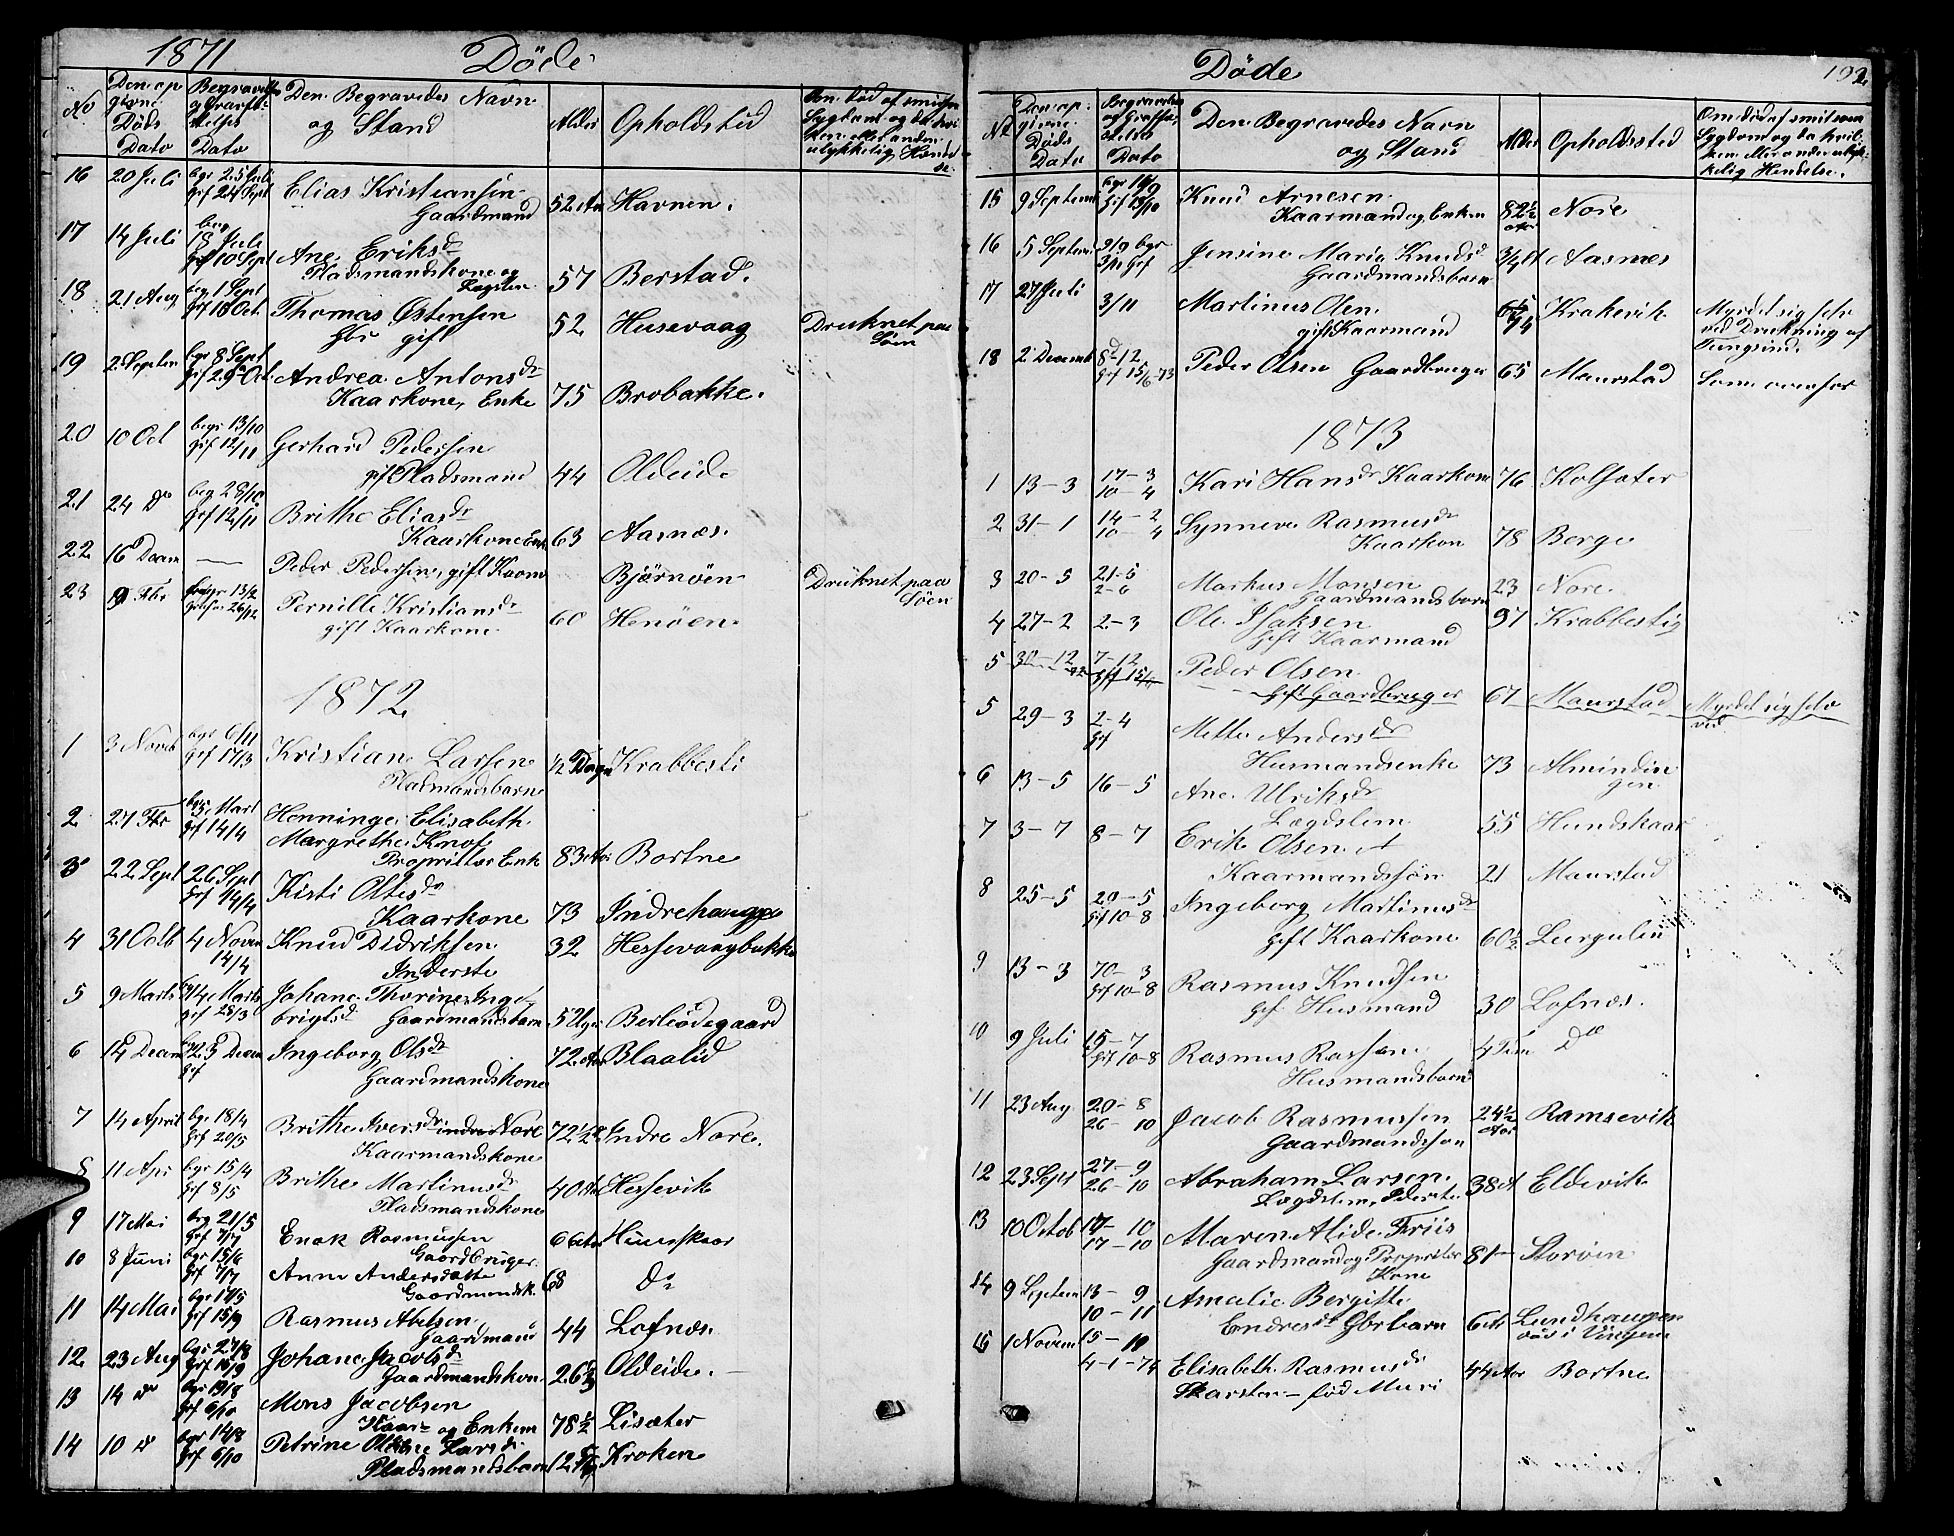 1871 Döde
No
Den op
givne
Döds
Dato
Begravelses
Dato
Den Begravedes Navn
og Stand
Alder
Opholdsted
Om död af smitsom
Sygdom og da hvi
ken eller anden
ulykkelig Hænd
se.
16 20 Juli bgr 25 Juli
Gif 24 Sept Elias Kristiansen
Gaardmand 52 Aar Havnen.
17 14 Juli beg
18 Juli
Gif 10 Sept Ane Eriksdr
Pladsmandskone og
57 Berstad.
18 21 Aug beg 1 Sept
Gif 18 Oct. Thomas Østensen
Gbr gift 52 Husevaag Druknet paa
Söen
19 2 Septem bgr 8 Sept
Gif 29 Oct. Andrea Antonsdr
Kaarkone, Enke 75 Brobakke.
20 10 Oct begr 13/10
Grf 12/11 Gerhard Pedersen
gift Pladsmand 44 Oldeide
21 24 Do beg 28/10
Grf 12/11 Brithe Eliasdr
Kaarkone Enk 63 Aasnæs.
22 16 Decem — Peder Pedersen, gift Kaarm Bjørnöen Druknet paa
Söen
23 9 Fbr begr 13/2
26/12 Pernille Kristiansdr
gift Kaarkone 60 Henöen.
1872
1 3 Novb bgr 6/11
Gif 17/3 Kristian Larsen
Pladsmandsbarn 1/2 Dage Krabbesti
2 27 Fbr bgr Mart
Grf 14/4 Henninge Elisabeth
Margrethe Knof
Propritær Enk 83 Aar Bortne
3 22 Sept 26 Sept
Gif 14/4 Kisti Oltedr
Kaarkone 73 Indrehaugge
4 31 Octb 4 Noven
14/4 Knud Didriksen
Inderste 32 Hessevaagbakke
5 9 Marts 14 Marts
Gif 25/3 Johane Thorine Inge
brigtsdr Gaardmandsbarn 5 Uger Berleödegaard
6 14 Decem 23 Decem
Gif Ingeborg Olsdr
Gaardmandskone 72 Aar Blaalid
7 14 April bgr 18/4
Gif 20/5 Brithe Iversdr indre Nore
Kaarmandskone 72 1/2 Indre Nore.
8 11 Apr bgr 15/4
Grf 8/5 Brithe Martinusdr
Pladsmandskone 40 Aar Hessevik
9 17 Mai brg 21/5
Grf 7/7 Enok Rasmusen
Gaardbruger 66 Aar Hunskaar
10 8 Juni bgr 15/6
Grf 7/7 Anne Andersdatte
Gaardmandsk. 68 Do
11 14 Mai bgr 17/5
Grf 15/9 Rasmus Abelsen
Gaardmand 44 Lofnæs.
12 23 Aug bgr 27/8
Grf 15/9 Johane Jacobsdr
Gaardmandskon 26 Oldeide.—
13 14 do bgr 19/8
Grf 6/10 Mons Jacobsen
Kaar- og Enkem 78 1/2 Lisæter
14 10 do bgr 14/8
Grf 6/10 Petrine Larsdr
Pladsmandsbarn 12 Kroken
Döde 192
Nr
Den op-
givne
Döds
Dato
Begravelses
og Graffæs
telse
Dato
Den Begravedes Navn
og Stand
Alder
Opholdssted
Om död af smitsom
Sygdom og da hvil
ken eller anden ulyk-
kelig Hendelse.
15 9 Septem bgr 14/9
Grf 13/10 Knud Arnesen
Kaarmand og Enkem 82 1/2
Aar Nore
16 5 Septem 9/9 bgr
3/11 Gif Jensine Marie Knudsdr
Gaardmandsbarn 3/4 A Aasnæs
17 27 Juli 3/11 Martinus Olsen
gift Kaarmand Krakevik Myrdet sig selv
ved Drukning af
Tungsind.
18 2 Decemb 8-12
Gif 15/6-73 Peder Olsen Gaardbruger 65 Maurstad Som ovenfor
1873
1 13-3 17-3
10-4 Kari Hansdr Kaarkone 76 Kolsæter
2 31-1 14-2
10-4 Synneve Rasmusdr
Kaarkon 78 Berge
3 20-5 21-5
2-6 Markus Monsen
Gaardmandsbarn 23 Nore
4 27-2 2-3 Ole Isaksen
Gift Kaarmand 97 Krabbestig
5 30-12 7-12
Gif 15/6 Peder Olsen
Gift Gaardbruger 67 Maurstad Myrdet sig selv
ved
5 29-3 2-4
Gif Mette Andersdr
Husmandsenke 73 Almindin
gen
6 13-5 16-5 Ane Ulriksdr
Lægdslem 55 Hundskaar
7 3-7 8-7 Erik Olsen
Kaarmandssön 21 Maurstad
8 25-5 20-5
Gif 10-8 Ingeborg Martinusdr
gift Kaarkone 60 1/2 Leirgulen
9 13-3 70-3
Gif 10-8 Rasmus Knudsen
gif. Husmand 30 Lofnæs.
10 9 Juli 15-7
Gif 10-8 Rasmus Rassen
Husmandsbarn 4 Tim Do
11 23 Aug 20-8
26-10 Jacob Rasmussen
Gaardmandssön 24 1/2
Aar Ramsevik
12 23 Sept 27-9
26-10 Abraham Larsen
Lægdslem, 38 A Eldevik
13 10 Octob 17-10
17-10 Maren Alide Friis
Gaardmand og Propritær
Kone 81- Storöen
14 9 Septem 13-9
10-11 Amalie Bergitte
Endresdr Gbrbarn 6 A Lundhaugen
i Vingen
15 1 Novem 15-11
4-1-74 Elisabeth Rasmusdr
Skarsten— född Muri 44 Aar Bortne